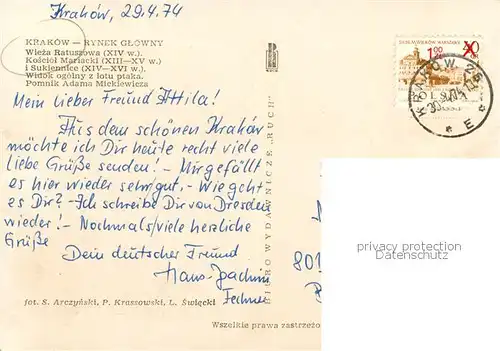 Kraków, 29.4.74
KRAKÓW — RYNEK GŁÓWNY
Wieża Ratuszowa (XIV w.).
Kościół Mariacki (XIII—XV w.)
i Sukiennice (XIV—XVI w.).
Widok ogólny z lotu ptaka.
Pomnik Adama Mickiewicza
Mein lieber Freund Attila!
Aus dem schönen Kraków
möchte ich Dir heute recht viele
liebe Grüße senden! - Mir gefällt
es hier wieder sehr gut, - Wie geht
es Dir? - Ich schreibe Dir von Dresden
wieder! - Nochmals viele herzliche
Grüße
Dein deutscher Freund
Hans-Joachim
Fechner
fot. S. Arczyński, P. Krassowski, L. Święcki
BIURO WYDAWNICZE „RUCH"
Wszelkie prawa zastrzeżo
1,00
KRAKÓW 28
E
801
privacy protection
Datenschutz